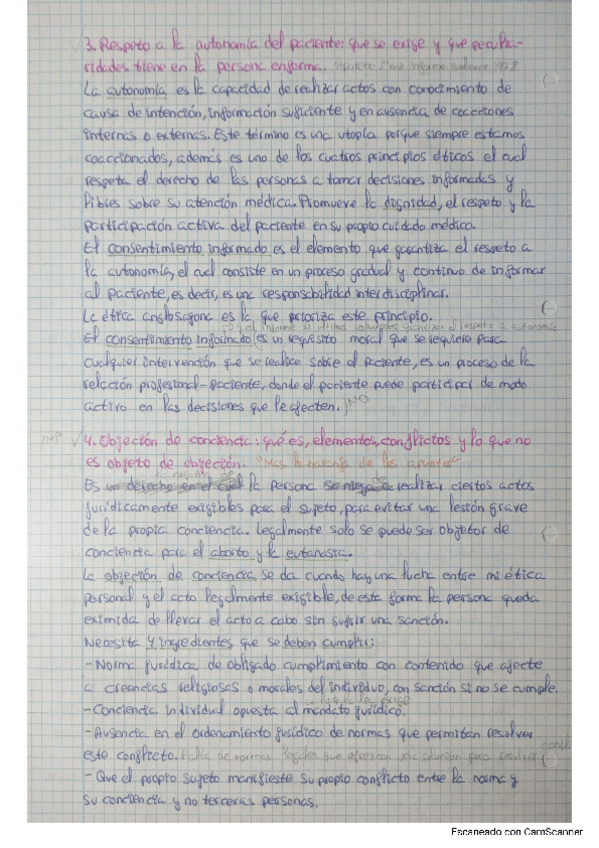 3. Respeto a la autonomía del paciente: que se exige y que peculia-
ridades tiene en la persona enferma.
La autonomía es la capacidad de realizar actos con conocimiento de
causa de intención, información suficiente y en ausencia de coacciones
internas o externas. Este término es una utopía porque siempre estamos
coaccionados, además es uno de los cuatros principios éticos el cual
respeta el derecho de las personas a tomar decisiones informadas y
libres sobre su atención médica. Promueve la dignidad, el respeto y la
participación activa del paciente en su propio cuidado médico.
El consentimiento informado es el elemento que garantiza el respeto a
la autonomía, el cual consiste en un proceso gradual y continuo de informar
al paciente, es decir, es una responsabilidad interdisciplinar.
La ética anglosajona es la que prioriza este principio.
el respeto a autonomía
El consentimiento informado es un requisito moral que se requiere para
cualquier intervención que se realice sobre el paciente, es un proceso de la
relación profesional-paciente, donde el paciente puede participar de modo
activo en las decisiones que le afecten. NO
IMP
4. Objeción de conciencia: qué es, elementos, conflictos y lo que no
es objeto de objeción. de los apuntes
la negativa de
Es un derecho en el cual la persona se niega a realizar ciertos actos
jurídicamente exigibles para el sujeto, para evitar una lesión grave
de la propia conciencia. Legalmente solo se puede ser objetor de
conciencia para el aborto y la eutanasia.
La objeción de conciencia, se da cuando hay una lucha entre mi ética
personal y el acto legalmente exigible, de esta forma la persona queda
eximida de llevar el acto a cabo sin sufrir una sanción.
Necesita 4 ingredientes que se deben cumplir:
- Norma jurídica de obligado cumplimiento con contenido que afecte
a creencias religiosas o morales del individuo, con sanción si no se cumple.
- Conciencia individual opuesta al mandato jurídico.
- Ausencia en el ordenamiento jurídico de normas que permitan resolver
este conflicto. Falta de normas legales que ofrezcan una solución para
- Que el propio sujeto manifieste su propio conflicto entre la norma y
su conciencia y no terceras personas.
Escaneado con CamScanner